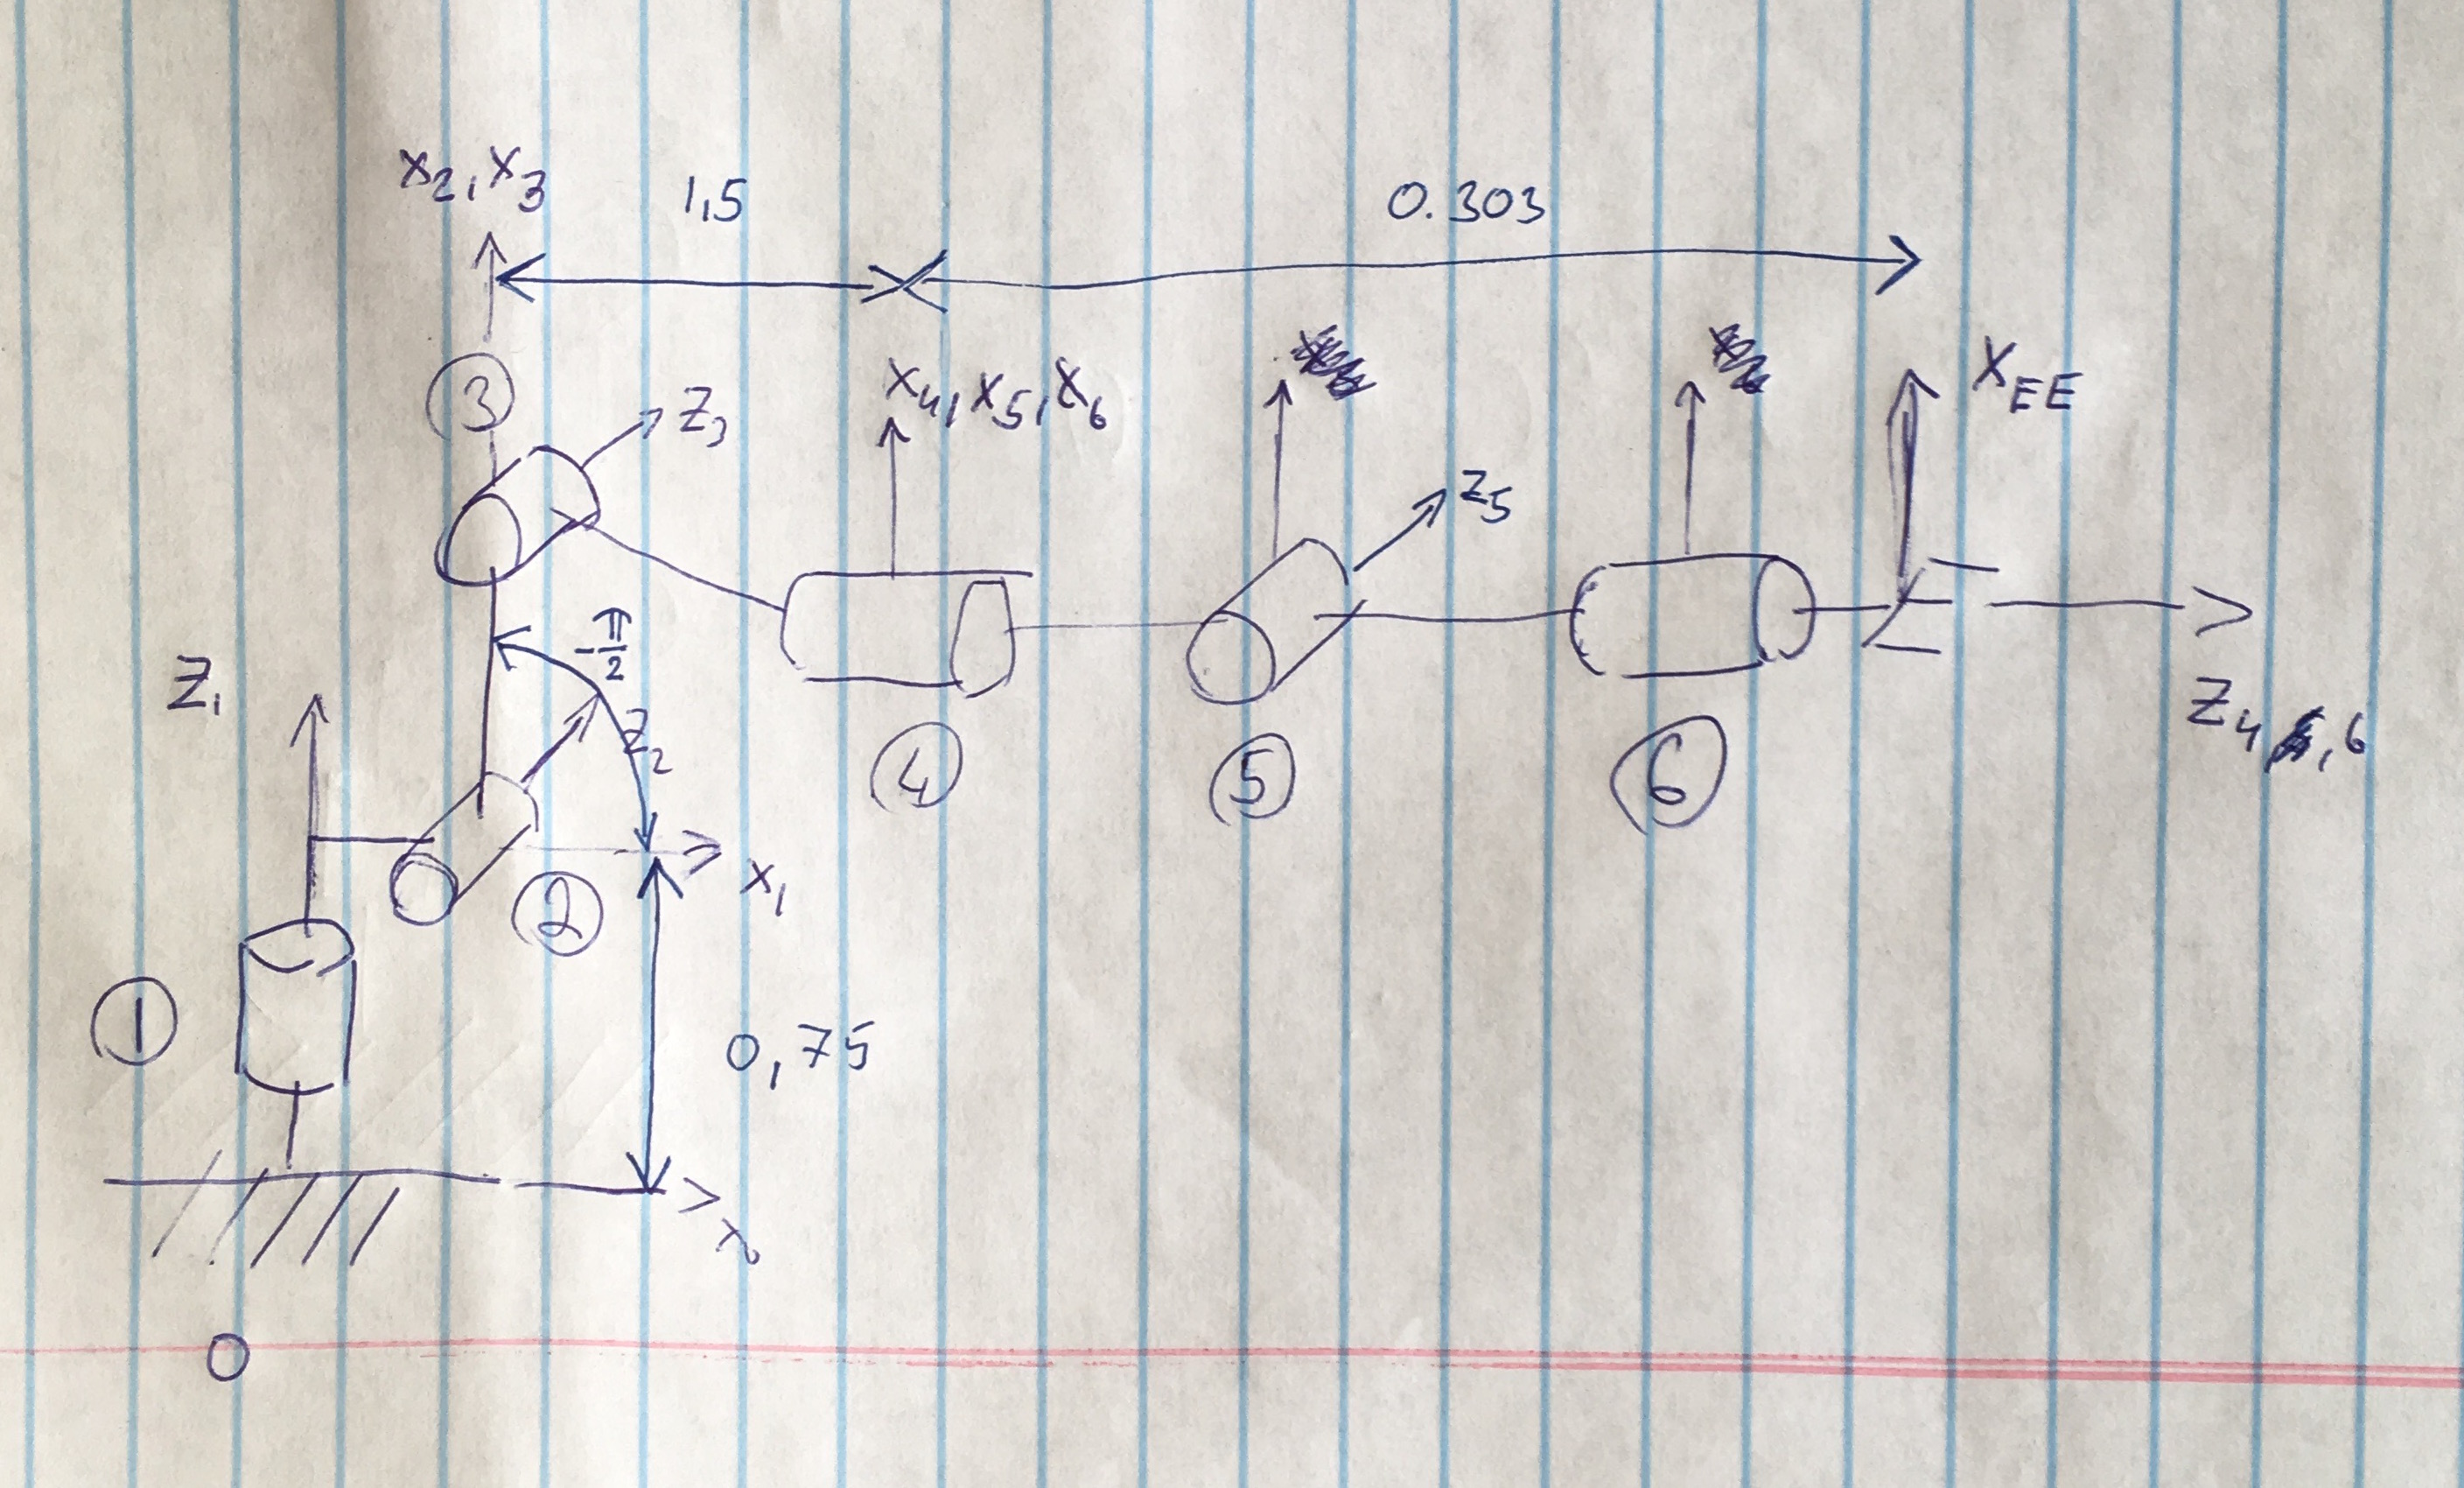 x₂, x₃
1,5
0.303
③
z₃
x₄, x₅, x₆
X_EE
z₅
-π/2
z₁
z₂
④
⑤
⑥
z₄, ₆
②
x₁
①
0,75
x₀
0